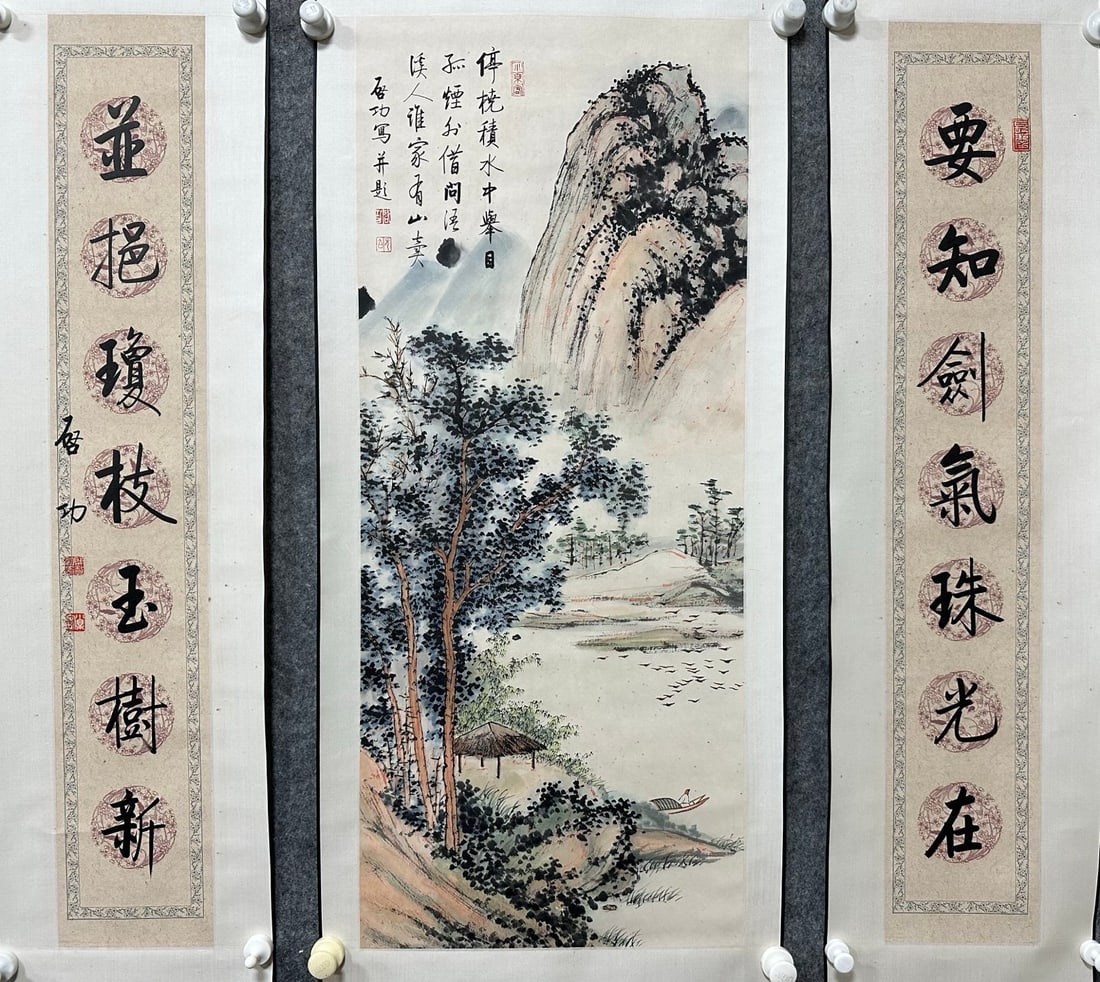 要知劍氣珠光在
停橈積水中舉目
孤煙外借問浯
溪人誰家有山賣
启功寫并題
並挹瓊枝玉樹新
启功